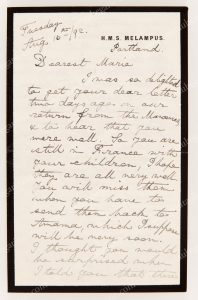 Tuesday
Aug. 16th/92.
H.M.S. MELAMPUS.
Portland
Dearest Marie
I was so delighted
to get your dear letter
two days ago, on our
return from the Manoeuvres,
& to hear that you
were well. So you are
still in France with
your children, I hope
they are all very well.
You will miss them
when you have to
send them back to
Amama, which I suppose
will be very soon.
I thought you would
be surprised when
I told you that there